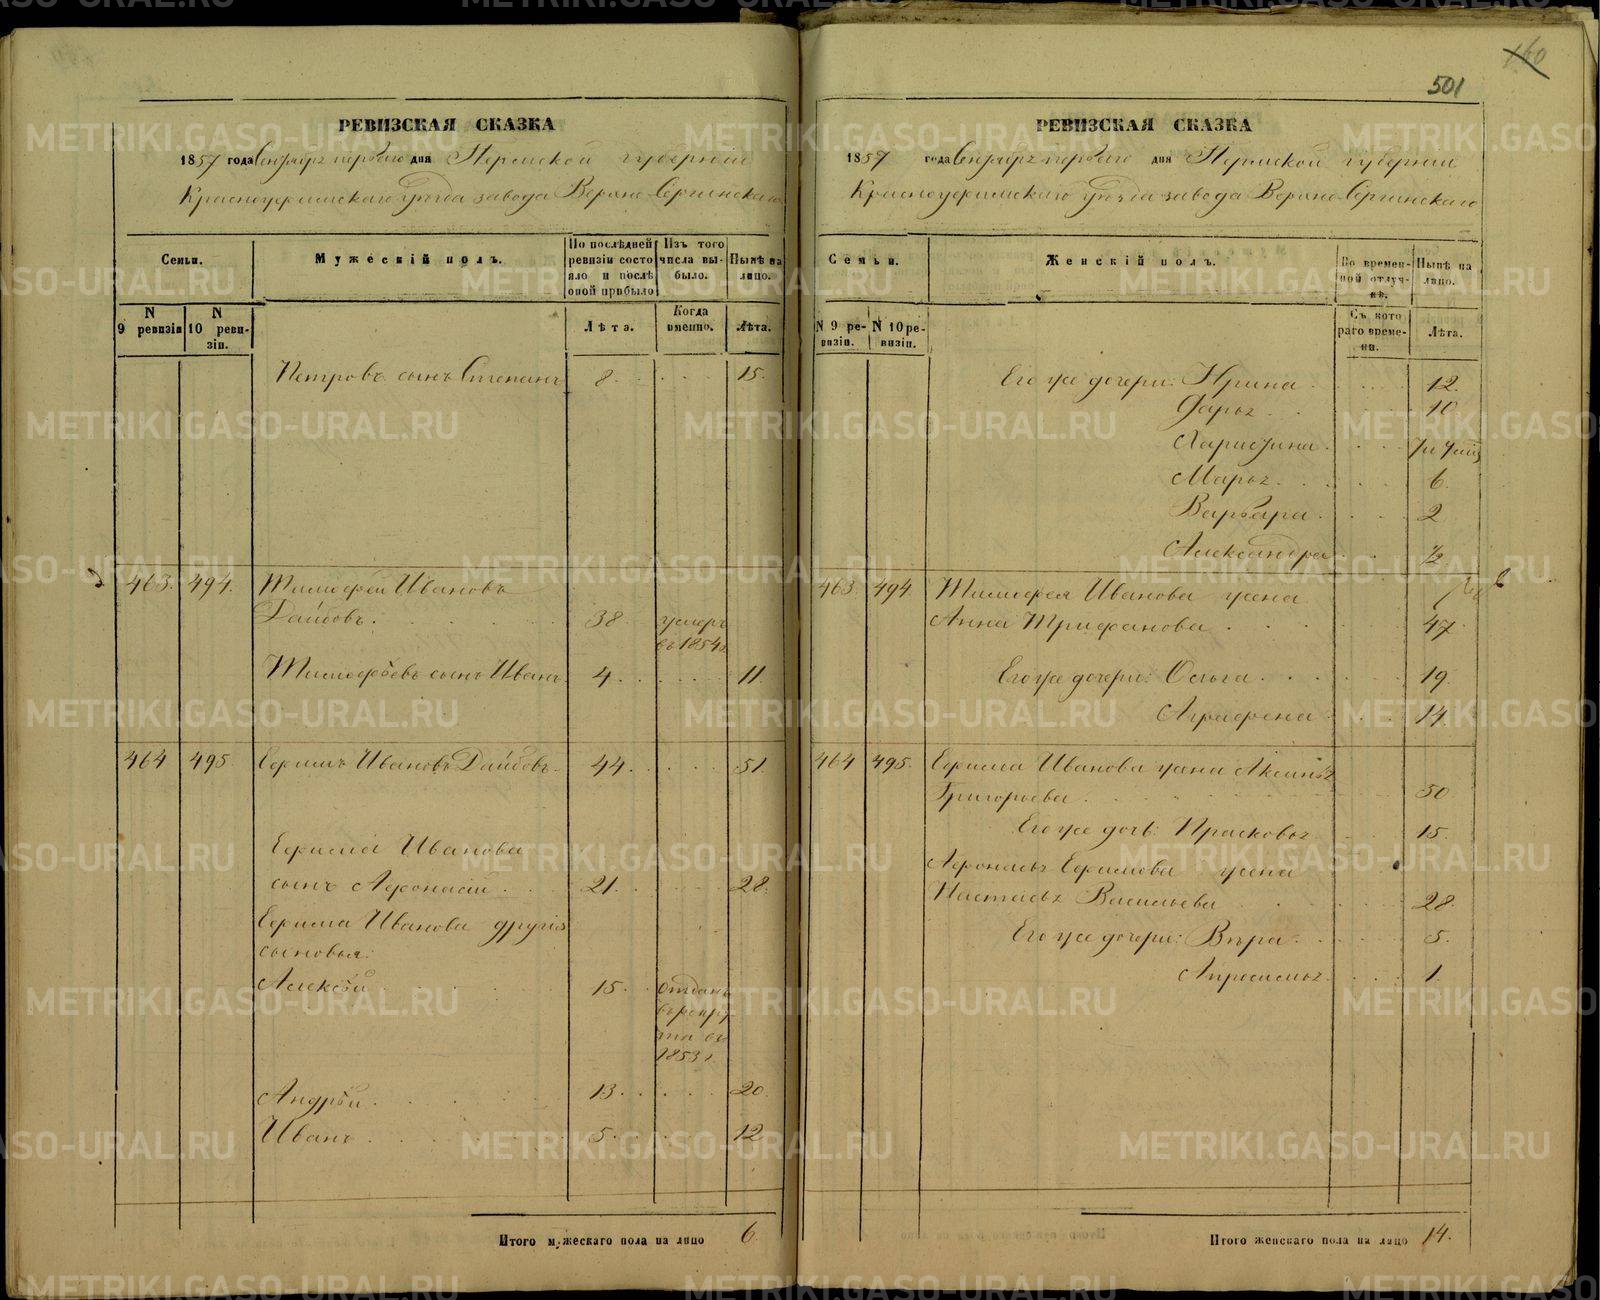 160
501
РЕВИЗСКАЯ СКАЗКА
1857 года Сентября первого дня Пермской губернии
Красноуфимскаго уѣзда завода Верхне-Сергинскаго
Семьи.
Мужескій полъ.
По послѣдней ревизіи состояло и послѣ оной прибыло
Изъ того числа выбыло.
Нынѣ на лицо.
N 9 ревизіи
N 10 ревизіи.
Лѣта.
Когда именно.
Лѣта.
Петровъ сынъ Степанъ 8 15
463. 494. Тимофей Ивановъ
Даибовъ 38 умеръ
въ 1854г
Тимофѣевъ сынъ Иванъ 4 11
464 495 Ефимъ Ивановъ Даибовъ 44 51
Ефима Иванова
сынъ Афонасій 21 28
Ефима Иванова другіе
сыновья:
Алексѣй 15 отданъ
въ рекру
та въ
1853 г.
Андрѣй 13 20
Иванъ 5 12
Итого мужескаго пола на лицо 6
РЕВИЗСКАЯ СКАЗКА
1857 года Сентября первого дня Пермской губернии
Красноуфимскаго уѣзда завода Верхне-Сергинскаго
Семьи.
Женскій полъ.
Во временной отлучкѣ.
Нынѣ на лицо.
N 9 ревизіи.
N 10 ревизіи.
Съ котораго времени.
Лѣта.
Его же дочери: Ирина 12
Дарья 10
Харистина
Марья 6
Варвара 2
Александра ½
463 494 Тимофея Иванова жена
Анна Трифанова 47
Его же дочери: Ольга 19
Аграфена 14
464 495 Ефима Иванова жена Аксинья
Григорьева 50
Его же дочь: Прасковья 15
Афонасья Ефимова жена
Настасья Васильева 28
Его же дочери: Вѣра 5
Апросинья 1
Итого женскаго пола на лицо 14.
METRIKI.GASO-URAL.RU